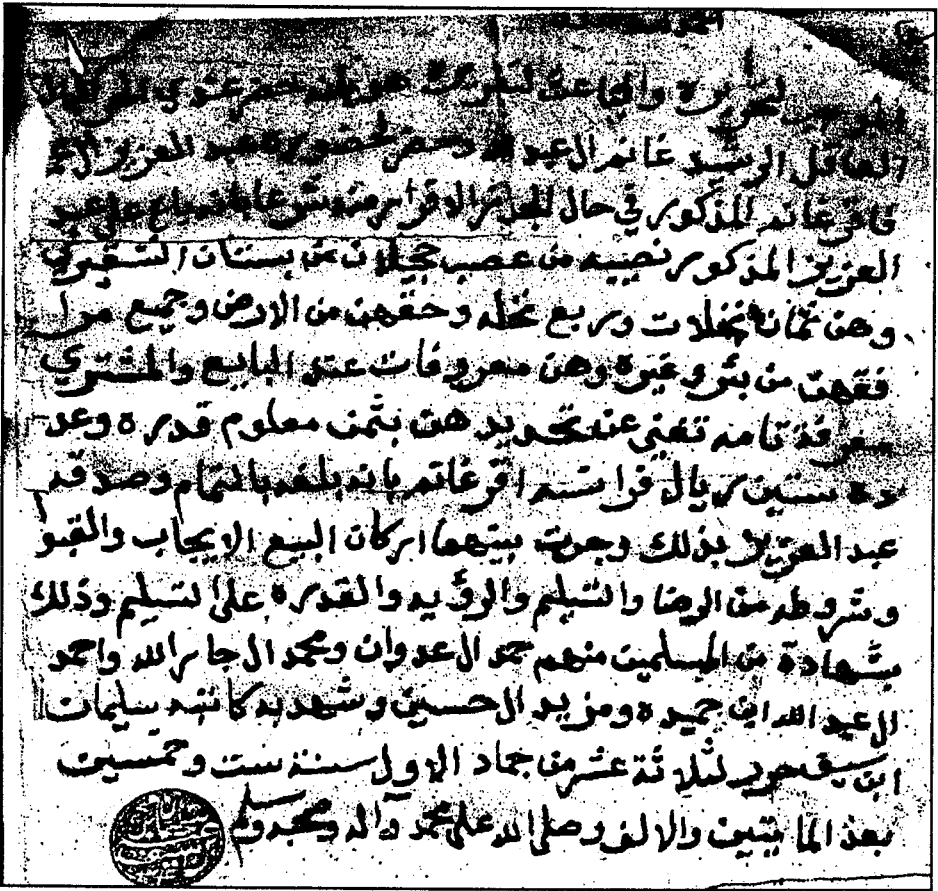 الموجب لتحريره والباعث لتقريره هو بانه حضر عندي
العاقل الرشيد غانم ال عبد الله وحضر لحضوره عبد العزيز ال
فاقر غانم المذكور في حال الجايز الاقرار منه شرعا بانه باع على عبد
العزيز المذكور نصيبه من عصب جحيلان من بستان الشقيري
وهن ثمان نخلات وربع نخله وحقهن من الارض وجميع مرا
فقهن من بئر وغيره وهن معروفات عند البايع والمشتري
معرفة تامه تغني عنه تحديدهن بثمن معلوم قدره وعد
ده ستين ريال فرانسه اقر غانم بانه بلغه بالتمام وصدقه
عبد العزيز بذلك وجرت بينهما اركان البيع الايجاب والقبو
وشروطه من الرضا والتسليم والرؤيه والقدره على التسليم وذلك
بشهادة من المسلمين منهم حمد ال عدوان ومحمد ال جار الله واحمد
ال عبد الله ابن حميده ومزيد ال حسين وشهد به كاتبه سليمان
ابن سيف حرر لثلاثة عشر من جماد الاول سنة ست وخمسين
بعد المايتين والالف وصلى الله على محمد واله وصحبه وسلم